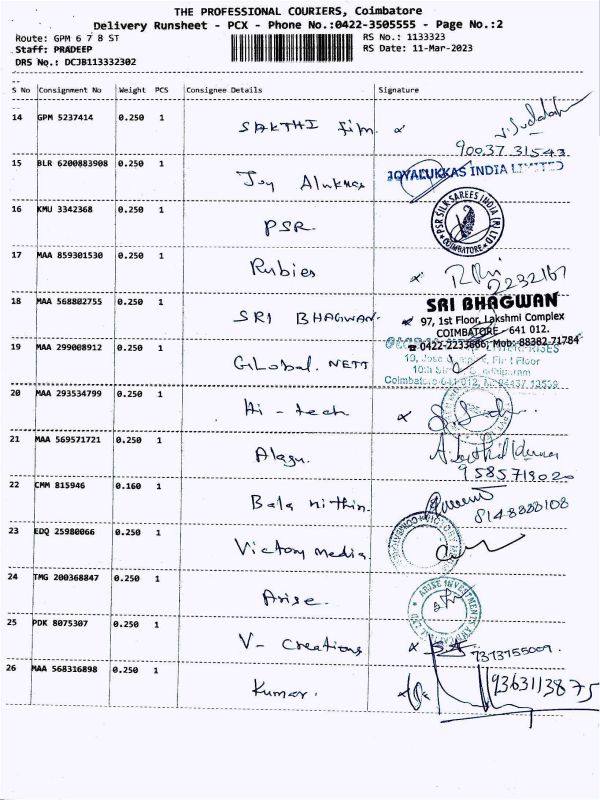 THE PROFESSIONAL COURIERS, Coimbatore
Delivery Runsheet - PCX - Phone No.:0422-3505555 - Page No.:2
Route: GPM 6 7 8 ST RS No.: 1133323
Staff: PRADEEP RS Date: 11-Mar-2023
DRS No.: DCJB113332302
S No Consignment No Weight PCS Consignee Details Signature
14 GPM 5237414 0.250 1 SAKTHI film
90037 31543
15 BLR 6200883908 0.250 1 Joy Alukkas JOYALUKKAS INDIA LIMITED
16 KMU 3342368 0.250 1 PSR PSR SILK SAREES INDIA (P) LTD COIMBATORE
17 MAA 859301530 0.250 1 Rubies
2232167
18 MAA 568802755 0.250 1 SRI BHAGWAN SRI BHAGWAN
97, 1st Floor, Lakshmi Complex
COIMBATORE - 641 012.
0422-2233666, Mob: 88382 71784
19 MAA 299008912 0.250 1 GLobal. NETT
Floor
Coimbatore
20 MAA 293534799 0.250 1 Hi - tech
21 MAA 569571721 0.250 1 Alagu.
9585719020
22 CMM 815946 0.160 1 Bala nithin.
8148888108
23 EDQ 25980066 0.250 1 Victory media. VICTORY
24 TMG 200368847 0.250 1 Arise. ARISE INVESTMENTS
25 PDK 8075307 0.250 1 V- Creations
7373755009
26 MAA 568316898 0.250 1 Kumar. 9363113875